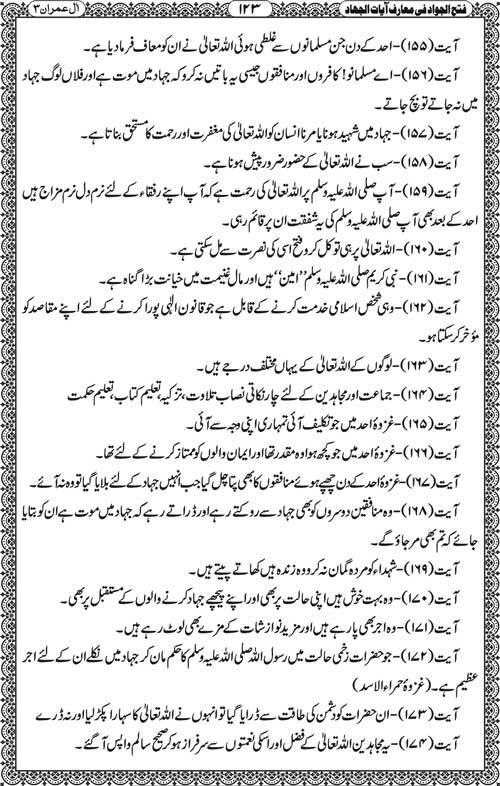 فتح الجواد فی معارف آیات الجہاد
۱۲۳
اٰل عمران ۳
آیت(۱۵۵)-احد کے دن جن مسلمانوں سے غلطی ہوئی اللہ تعالیٰ نے ان کو معاف فرما دیا ہے۔
آیت(۱۵۶)-اے مسلمانو! کافروں اور منافقوں جیسی یہ باتیں نہ کرو کہ جہاد میں موت ہے اور فلاں لوگ جہاد
میں نہ جاتے تو بچ جاتے۔
آیت(۱۵۷)-جہاد میں شہید ہونا یا مرنا انسان کو اللہ تعالیٰ کی مغفرت اور رحمت کا مستحق بناتا ہے۔
آیت(۱۵۸)-سب نے اللہ تعالیٰ کے حضور ضرور پیش ہونا ہے۔
آیت(۱۵۹)-آپ صلی اللہ علیہ وسلم پر اللہ تعالیٰ کی رحمت ہے کہ آپ اپنے رفقاء کے لئے نرم دل نرم مزاج ہیں
احد کے بعد بھی آپ صلی اللہ علیہ وسلم کی یہ شفقت ان پر قائم رہی۔
آیت(۱۶۰)-اللہ تعالیٰ پر ہی توکل کرو فتح اسی کی نصرت سے مل سکتی ہے۔
آیت(۱۶۱)-نبی کریم صلی اللہ علیہ وسلم ”امین“ ہیں اور مال غنیمت میں خیانت بڑا گناہ ہے۔
آیت(۱۶۲)-وہی شخص اسلامی خدمت کرنے کے قابل ہے جو قانون الٰہی پورا کرنے کے لئے اپنے مقاصد کو
مؤخر کر سکتا ہو۔
آیت(۱۶۳)-لوگوں کے اللہ تعالیٰ کے یہاں مختلف درجے ہیں۔
آیت(۱۶۴)-جماعت اور مجاہدین کے لئے چار نکاتی نصاب تلاوت، تزکیہ، تعلیم کتاب، تعلیم حکمت
آیت(۱۶۵)-غزوۂ احد میں جو تکلیف آئی تمہاری اپنی وجہ سے آئی۔
آیت(۱۶۶)-غزوۂ احد میں جو کچھ ہوا وہ مقدر تھا اور ایمان والوں کو ممتاز کرنے کے لئے تھا۔
آیت(۱۶۷)-غزوۂ احد کے دن چھپے ہوئے منافقوں کا بھی پتا چل گیا جب انہیں جہاد کے لئے بلایا گیا تو وہ نہ آئے۔
آیت(۱۶۸)-وہ منافقین دوسروں کو بھی جہاد سے روکتے رہے اور ڈراتے رہے کہ جہاد میں موت ہے ان کو بتایا
جائے کہ تم بھی مر جاؤ گے۔
آیت(۱۶۹)-شہداء کو مردہ گمان نہ کرو وہ زندہ ہیں کھاتے پیتے ہیں۔
آیت(۱۷۰)-وہ بہت خوش ہیں اپنی حالت پر بھی اور اپنے پیچھے جہاد کرنے والوں کے مستقبل پر بھی۔
آیت(۱۷۱)-وہ اجر بھی پا رہے ہیں اور مزید نوازشات کے مزے بھی لوٹ رہے ہیں۔
آیت(۱۷۲)-جو حضرات زخمی حالت میں رسول اللہ صلی اللہ علیہ وسلم کا حکم مان کر جہاد میں نکلے ان کے لئے اجر
عظیم ہے۔ (غزوۂ حمراء الاسد)
آیت(۱۷۳)-ان حضرات کو دشمن کی طاقت سے ڈرایا گیا تو انہوں نے اللہ تعالیٰ کا سہارا پکڑ لیا اور نہ ڈرے
آیت(۱۷۴)-یہ مجاہدین اللہ تعالیٰ کے فضل اور اسکی نعمتوں سے سرفراز ہو کر صحیح سالم واپس آگئے۔